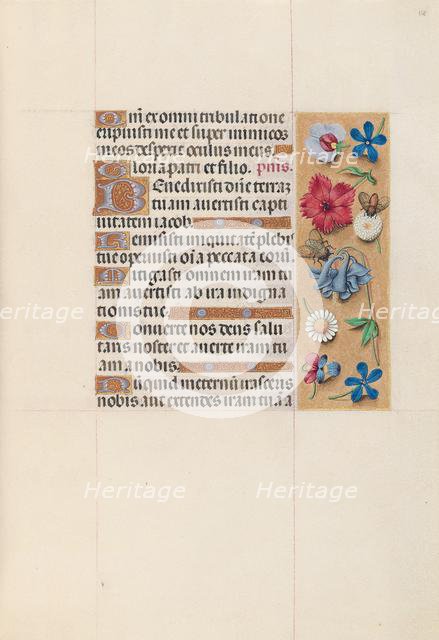 Qm̄ ex omni tribulatione
eripuisti me et super inimicos
meos despexit oculus meus.
Gloria patri et filio. p̄us.
Benedixisti dn̄e terraz
tuam avertisti capti
vitatem iacob
Remisisti iniquitatē plebis
tue operuisti oīa peccata eorū.
Mitigasti omnem iram tu
am avertisti ab ira indigna
tionis tue
Converte nos deus salu
taris noster et averte iram tu
am a nobis.
Nunquid ineternū irasceris
nobis aut extendes iram tuā a
Heritage
Heritage
Heritage
Heritage
Heritage
Heritage
Heritage